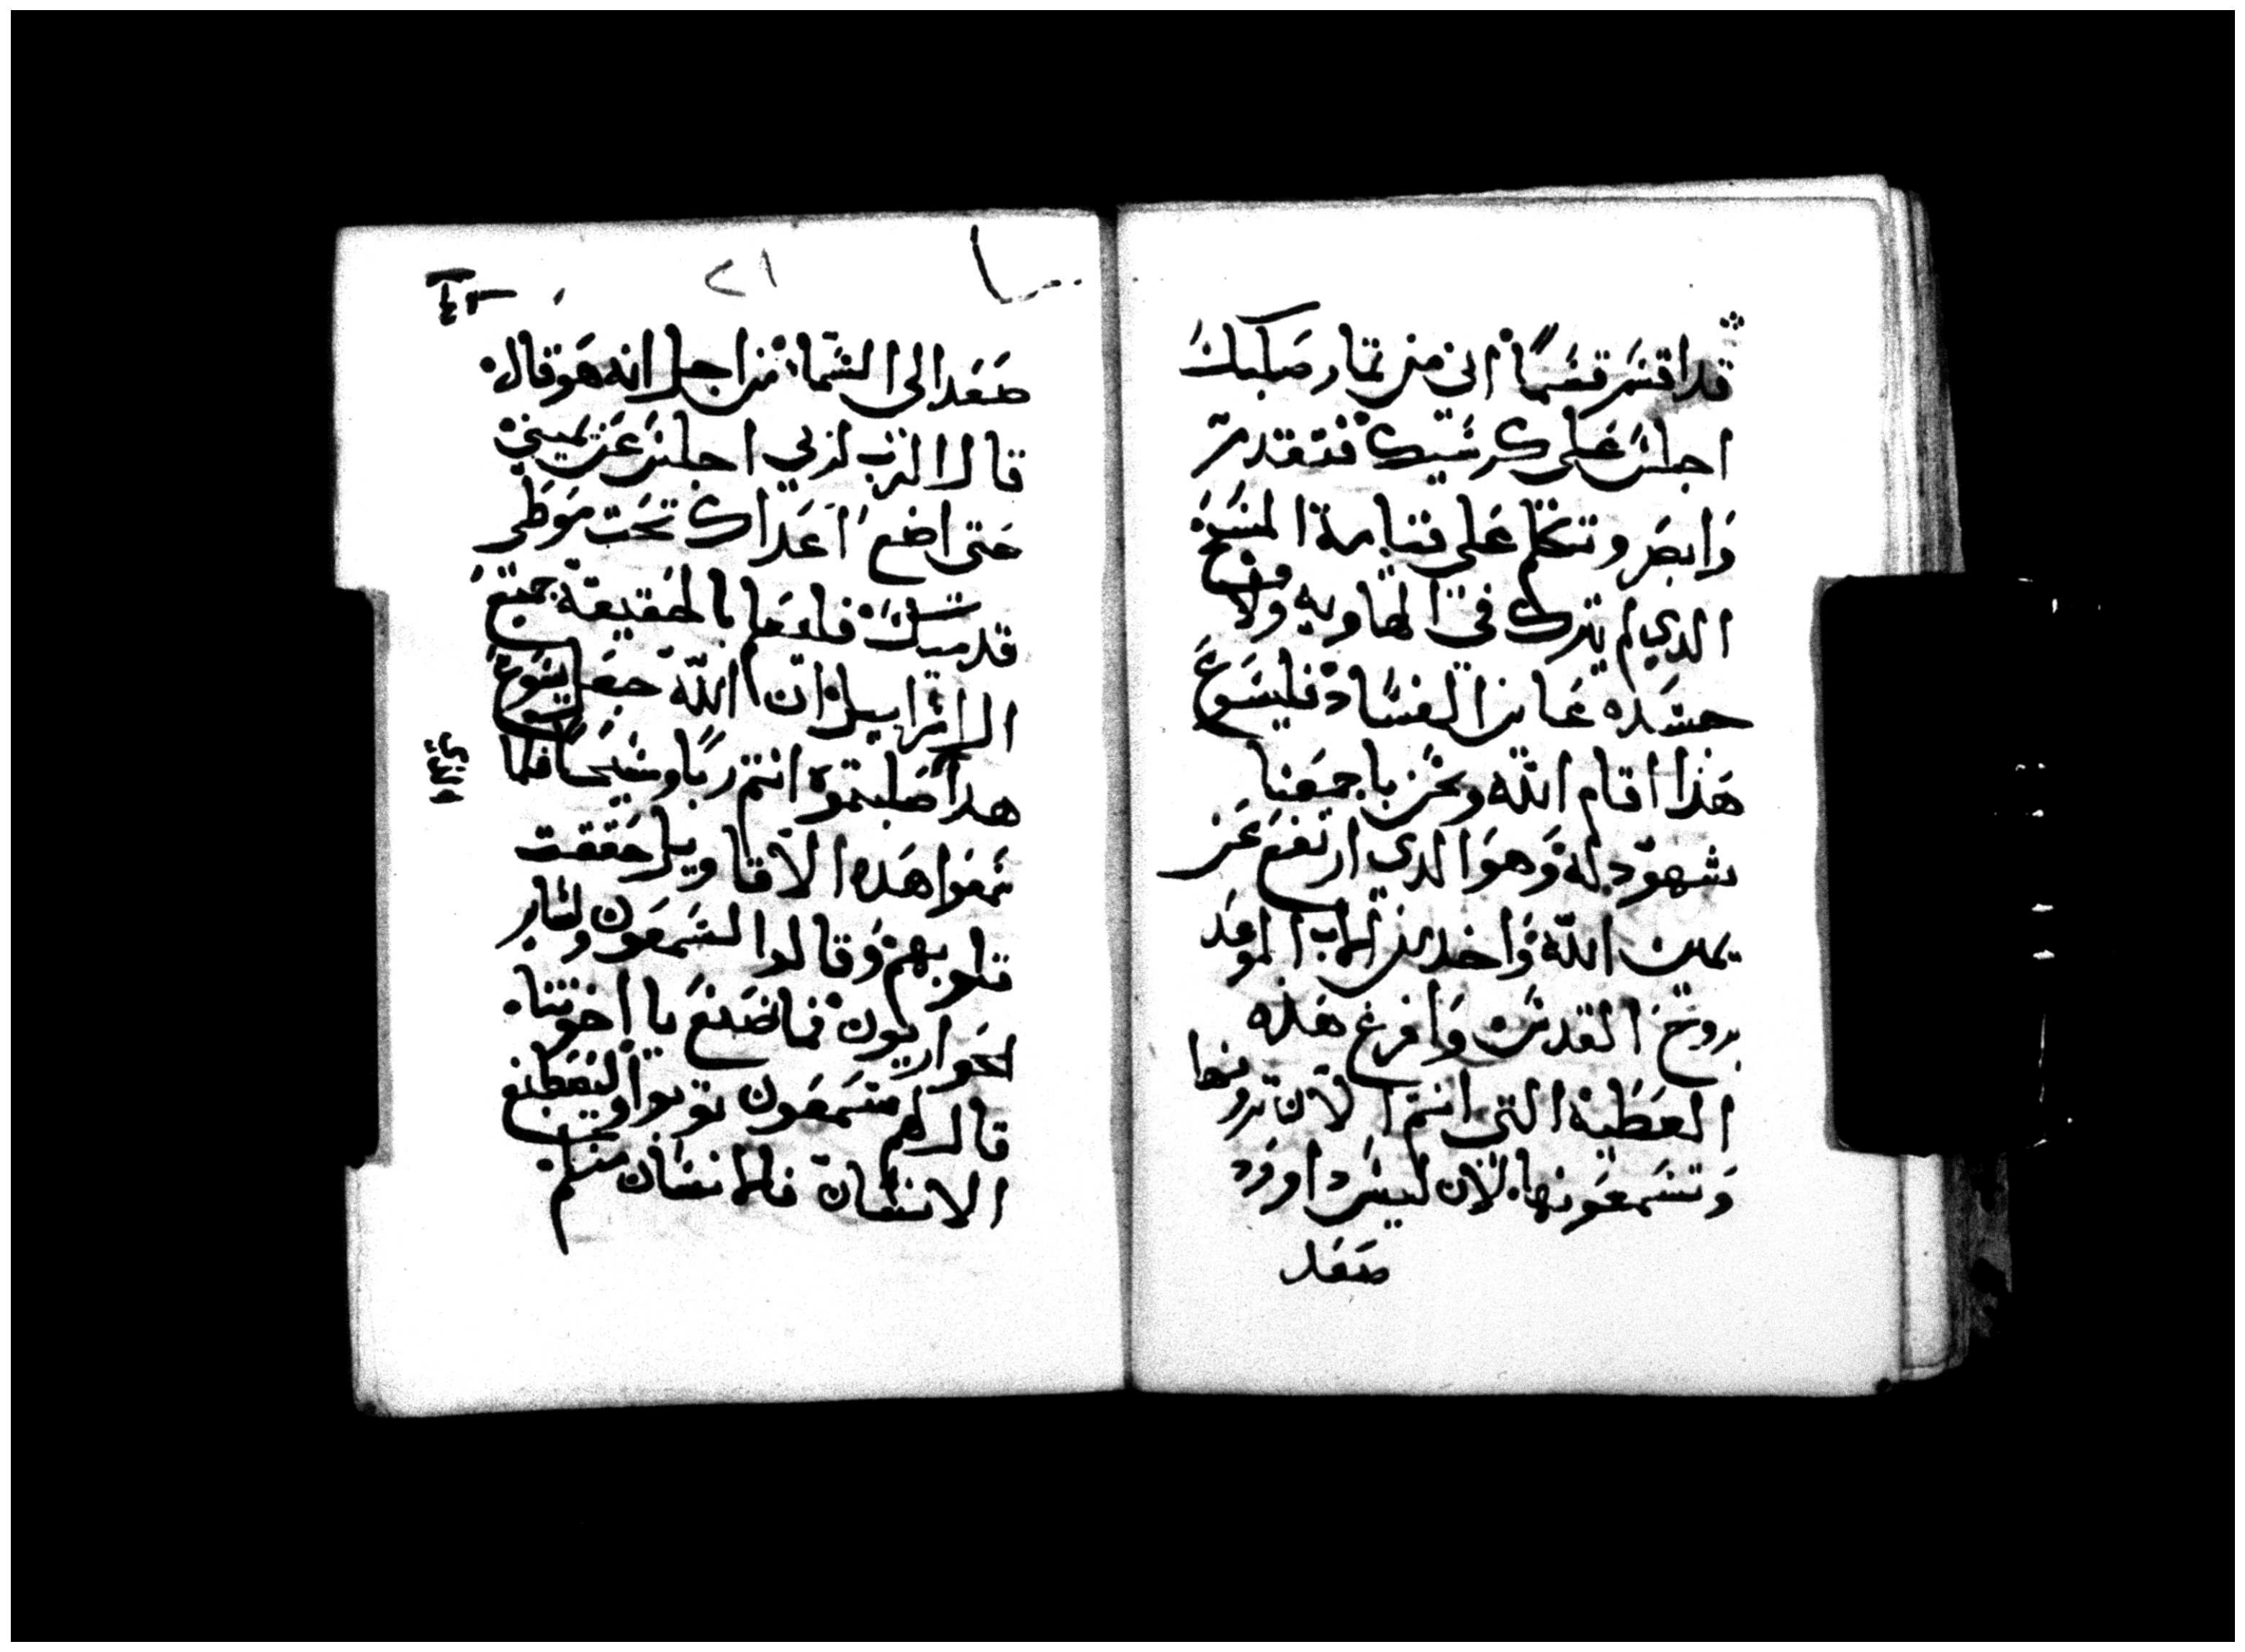 قد اقسم قسمًا اني من ثمار صلبك
اجلس علي كرسيك فتقدم
وابصر وتكلم علي قيامة المسيح
الدي لم يترك في الهاويه ولا
جسده عاين الفساد فليسوع
هذا اقام الله ونحن باجمعنا
شهود له وهو الدي ارتفع عن
يمين الله واخد من الاب الموعد
بروح القدس وافرغ هذه
العطية التي انتم الان ترونها
وتسمعونها لان ليس داوود
صعد
٢١
صعد الي السما من اجل انه هو قال
قال الرب لربي اجلس عن يميني
حتى اضع اعداك تحت موطي
قدميك فليعلم بالحقيقة جميع
ال اسراييل ان الله جعل يسوع
هدا صلبتموه انتم ربا ومسيحا فلما
سمعوا هده الاقاويل حققت
قلوبهم وقالوا لسمعون ولساير
لحواريون فما نصنع يا اخوتنا
قال لهم سمعون توبوا وليصطبغ
الانسان فالانسان منكم